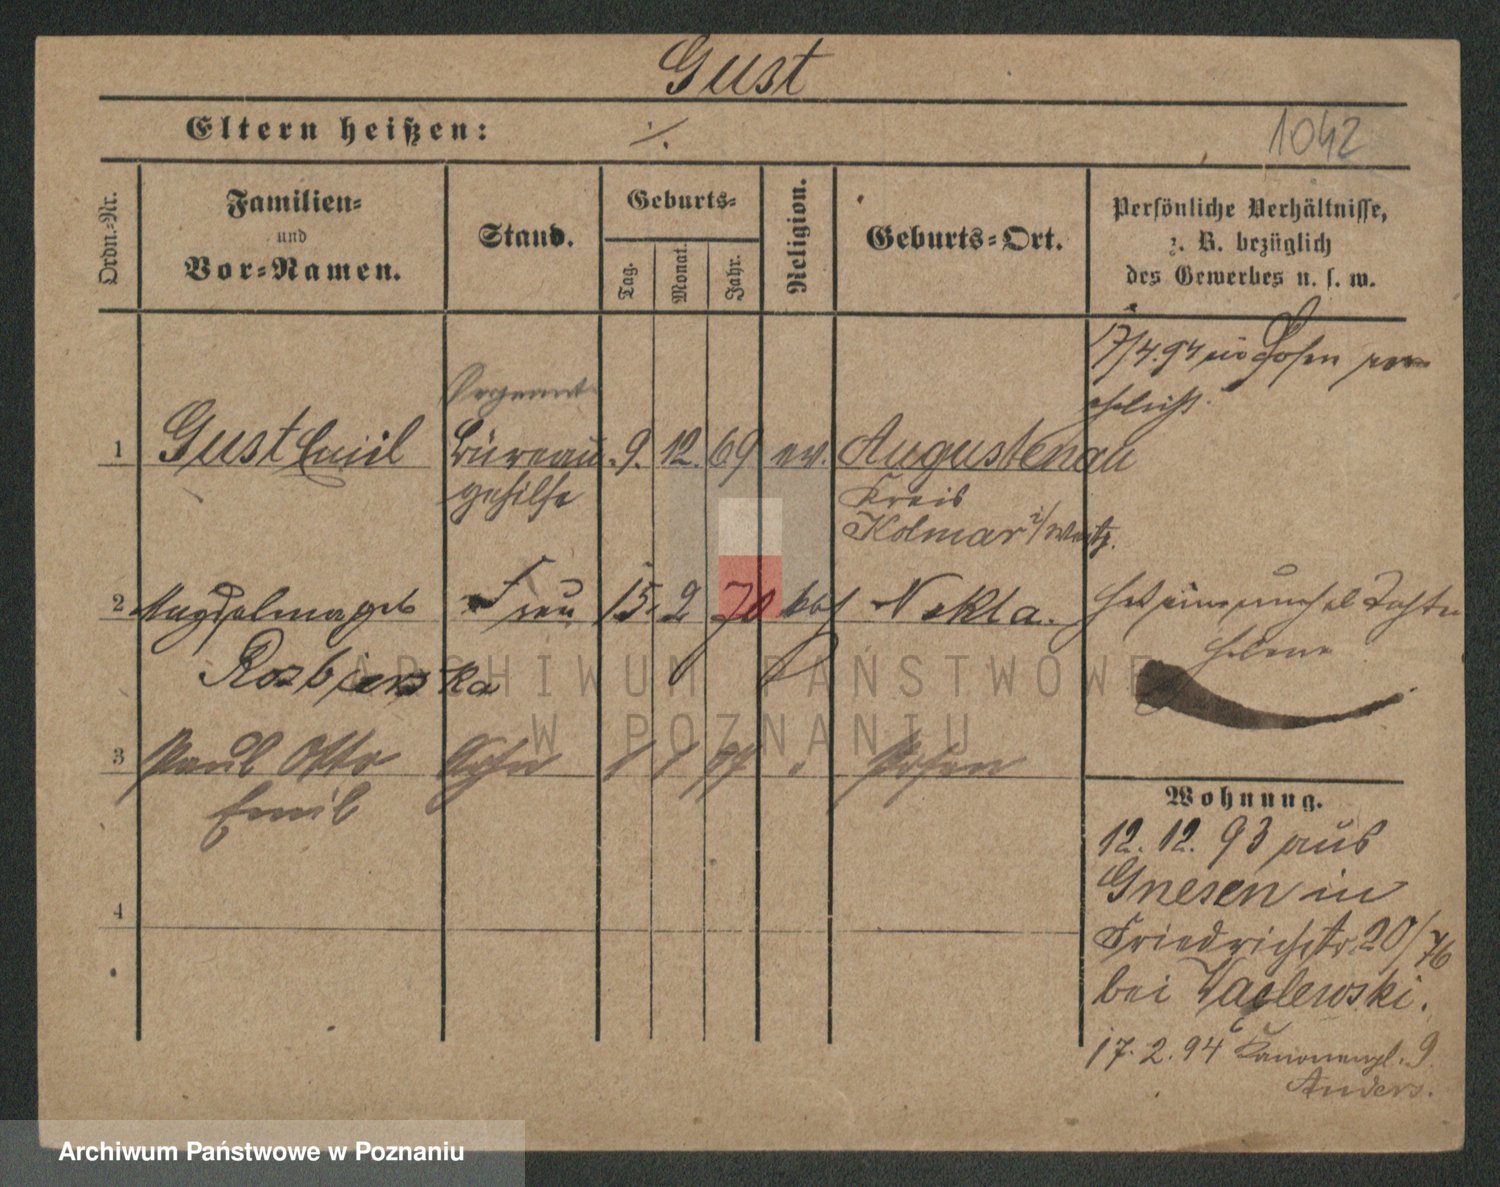 Gust
Eltern heißen: ./.
1042
Ordn.-Nr.
Familien-
und
Vor-Namen.
Stand.
Geburts-
Tag.
Monat.
Jahr.
Religion.
Geburts-Ort.
Persönliche Verhältnisse,
z. B. bezüglich
des Gewerbes u. s. w.
17/4.94 in Posen ver
ehelicht.
1 Gust Emil Büreau 9. 12. 69 ev. Augustenau
gehilfe Kreis
Kolmar i/
2 Magdalena geb Frau 15. 2 70 kath Nekla. Hat eine unehel Tochter
Rozbierska Helene
3 Paul Otto Sohn 1 1 Posen
Emil
4
Wohnung.
12. 12. 93 aus
Gnesen in
Friedrichstr. 20/76
bei
17. 2. 94 Kanonenpl. 9
Anders.
ARCHIWUM PAŃSTWOWE
W POZNANIU
Archiwum Państwowe w Poznaniu